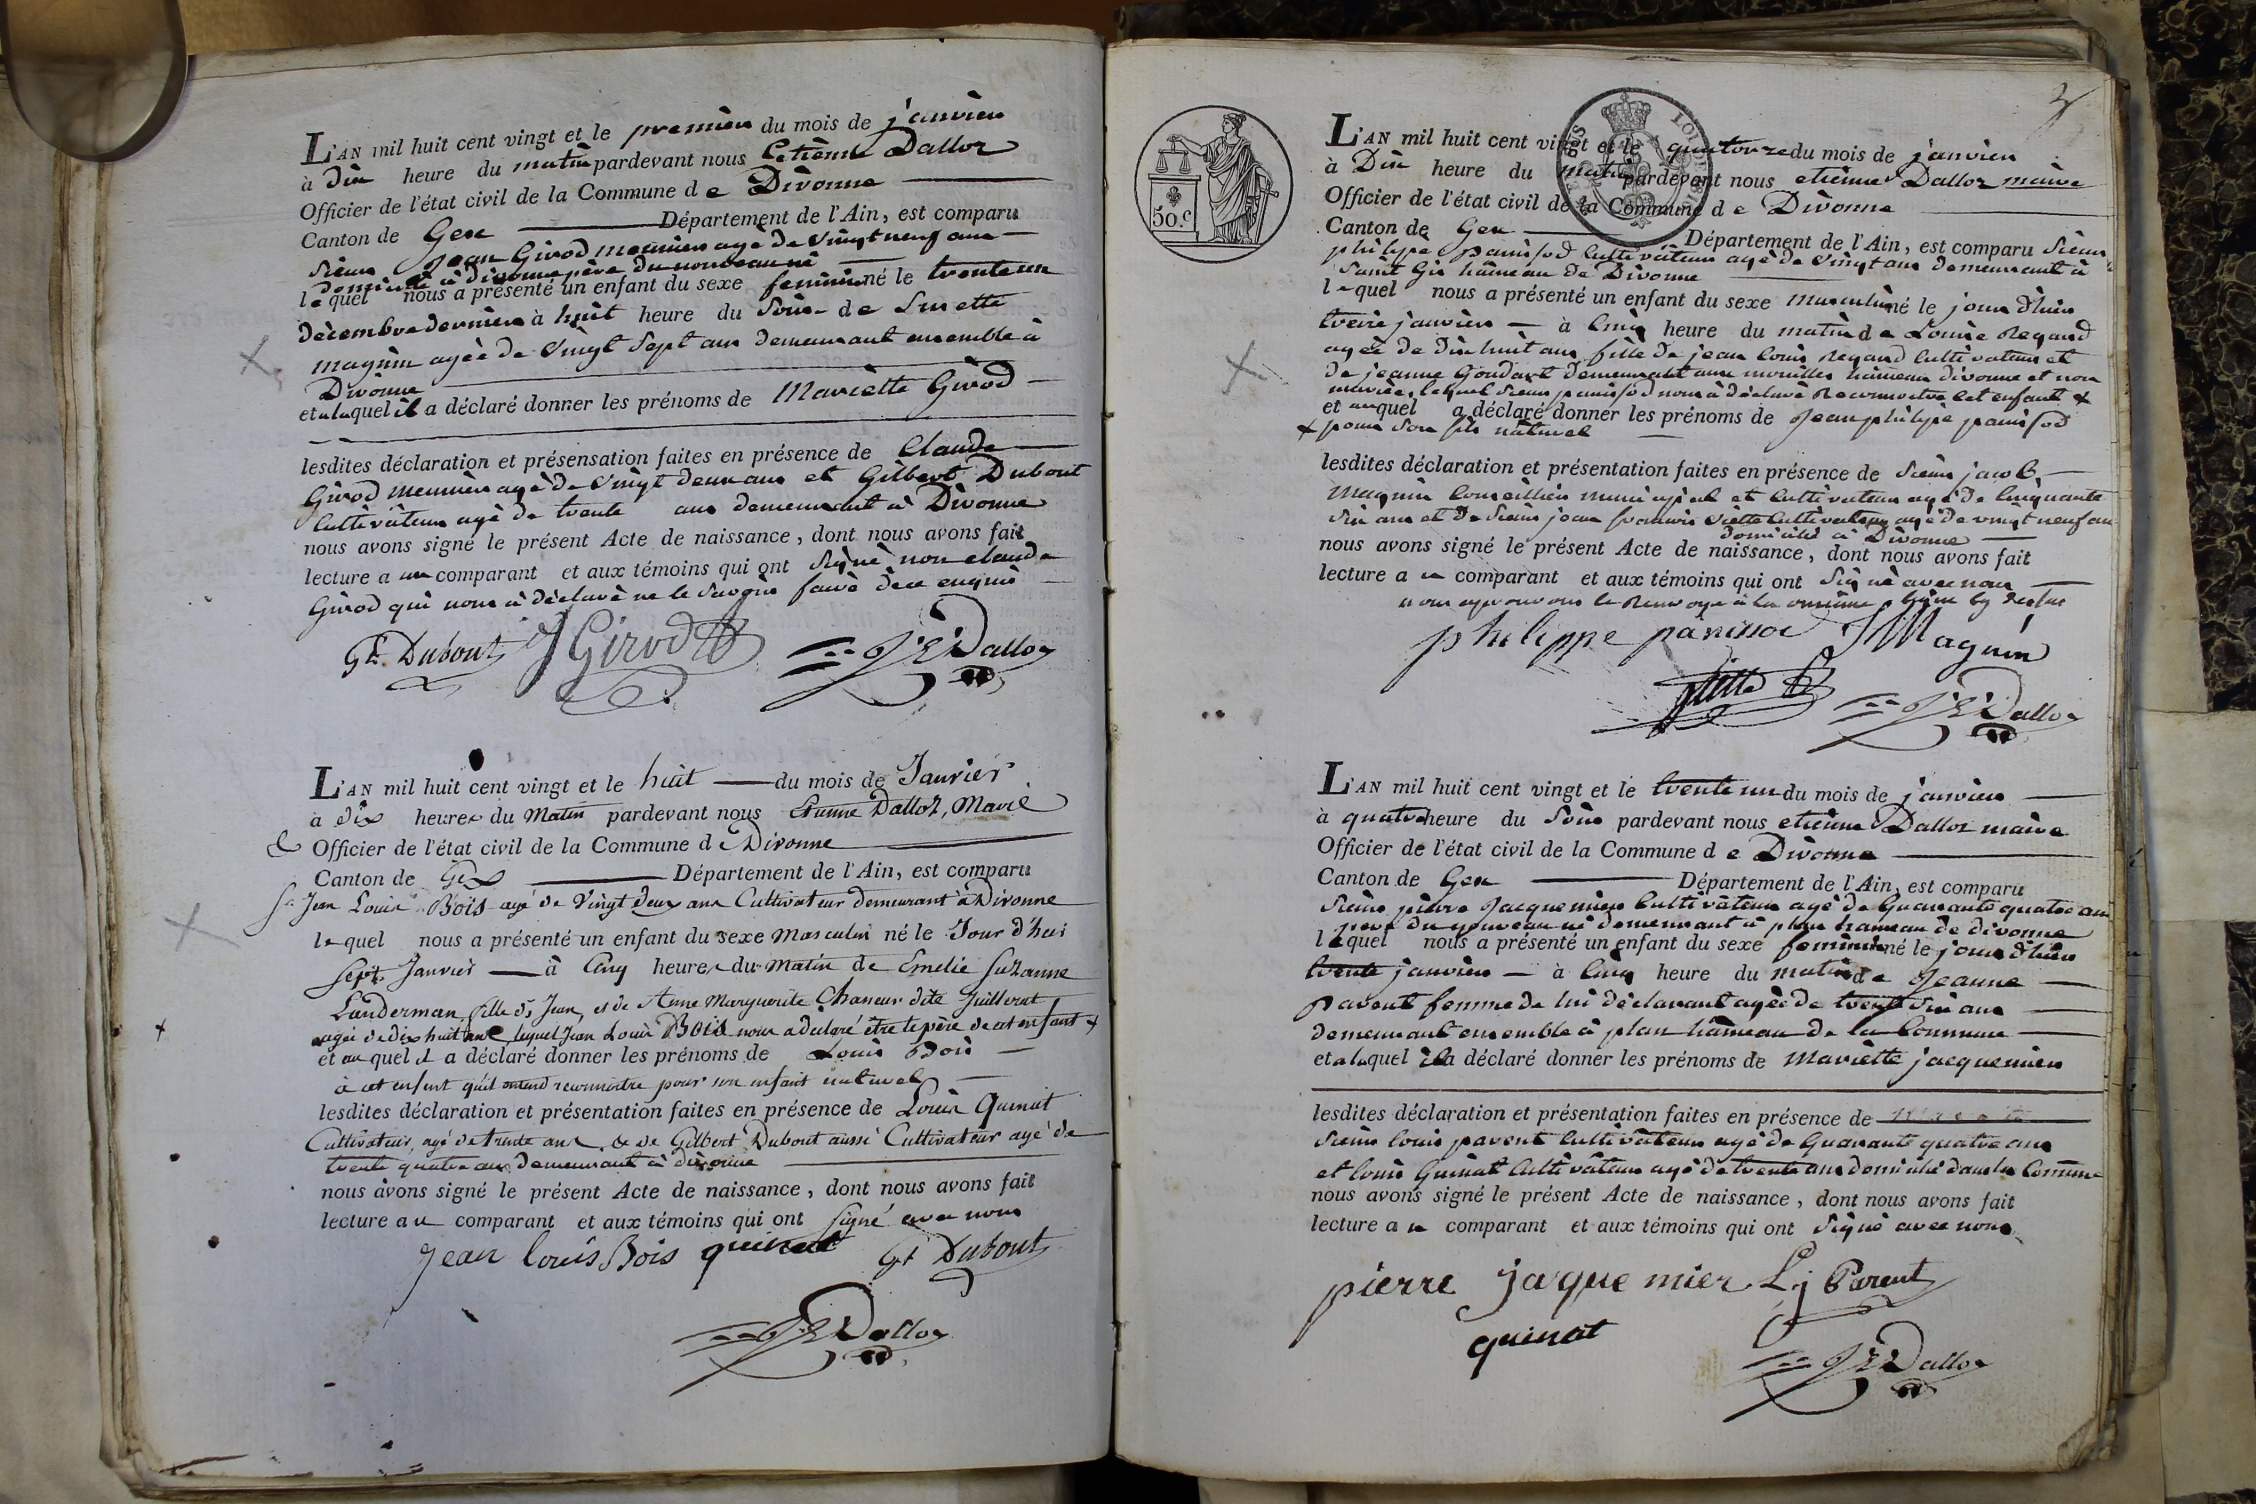 L'AN mil huit cent vingt et le premier du mois de janvier
à dix heure du matin pardevant nous Etienne Dalloz
Officier de l'état civil de la Commune de Divonne
Canton de Gex Département de l'Ain, est comparu
Sieur Jean Girod meunier agé de vingt neuf ans
domicilié à divonne père du nouveau né
lequel nous a présenté un enfant du sexe feminin né le trente un
décembre dernier à huit heure du Soir de Susette
magnin agée de vingt sept ans demeurant ensemble à
Divonne
et a laquel il a déclaré donner les prénoms de Mariette Girod
lesdites déclaration et présensation faites en présence de Claude
Girod meunier agé de vingt deux ans et Gilbert Dubout
Cultivateur agé de trente ans demeurant à Divonne
nous avons signé le présent Acte de naissance, dont nous avons fait
lecture a au comparant et aux témoins qui ont signé non claude
Girod qui nous à déclaré ne le savoir faire de ce enquis
Gt. Dubout J Girod J E Dalloz
L'AN mil huit cent vingt et le huit du mois de Janvier
à dix heures du Matin pardevant nous Etienne Dalloz, Maire
& Officier de l'état civil de la Commune de Divonne
Canton de Gex Département de l'Ain, est comparu
Sr. Jean Louis Bois agé de vingt deux ans Cultivateur demeurant à Divonne
lequel nous a présenté un enfant du sexe Masculin né le Jour d'hui
sept Janvier à Cinq heures du Matin de Emelie Suzanne
Landerman fille de Jean, et de Anne Marguerite Chaneur dite Juillerat
agée de dix huit ans, lequel Jean Louis Bois nous a déclaré être le père de cet enfant +
et au quel il a déclaré donner les prénoms de Louis Bois
+ à cet enfant qu'il entend reconnoitre pour son enfant naturel
lesdites déclaration et présentation faites en présence de Louis Quinat
Cultivateur, agé de trente ans & de Gilbert Dubout aussi Cultivateur agé de
trente quatre ans demeurant à divonne
nous avons signé le présent Acte de naissance, dont nous avons fait
lecture au comparant et aux témoins qui ont signé avec nous
Jean louis Bois quinat Gt Dubout
J E Dalloz
3
50.c
L'AN mil huit cent vingt et le quatorze du mois de janvier
à Dix heure du matin pardevant nous etienne Dalloz maire
Officier de l'état civil de la Commune de Divonne
Canton de Gex Département de l'Ain, est comparu Sieur
philippe panissod Cultivateur agé de vingt ans demeurant à
Saint Gix hameau de Divonne
lequel nous a présenté un enfant du sexe masculin né le jour d'hier
treize janvier à cinq heure du matin de Louise Regard
agée de dix huit ans fille de jean louis Regard Cultivateur et
de jeanne Goudard demeurant aux mouilles hameau divonne et non
mariée, lequel Sieur panissod nous à déclaré Reconnoitre cet enfant +
et auquel a déclaré donner les prénoms de Jean philippe panissod
+ pour son fils naturel
lesdites déclaration et présentation faites en présence de Sieur jacob
Magnin Conseillier municipal et cultivateur agé de Cinquante
six ans et de Sieur jean francois viette Cultivateur agé de vingt neuf ans
domicilié à Divonne
nous avons signé le présent Acte de naissance, dont nous avons fait
lecture au comparant et aux témoins qui ont signé avec nous
nous aprouvons le Renvoye à la onzième ligne
philippe panissod J Magnin
J E Dalloz
L'AN mil huit cent vingt et le trente un du mois de janvier
à quatre heure du Soir pardevant nous etienne Dalloz maire
Officier de l'état civil de la Commune de Divonne
Canton de Gex Département de l'Ain, est comparu
Sieur pierre Jacquemier Cultivateur agé de Quarante quatre ans
père du nouveau né demeurant à plan hameau de divonne
lequel nous a présenté un enfant du sexe feminin né le jour d'hier
trente janvier à cinq heure du matin de Jeanne
parent femme de lui déclarant agée de trente six ans
demeurant ensemble à plan hameau de la Commune
et a laquel il a déclaré donner les prénoms de Mariette jacquemier
lesdites déclaration et présentation faites en présence de
Sieur louis parent Cultivateur agé de Quarante quatre ans
et louis Quinat Cultivateur agé de trente ans domicilié dans la Commune
nous avons signé le présent Acte de naissance, dont nous avons fait
lecture au comparant et aux témoins qui ont signé avec nous
pierre jaquemier L j Parent
quinat
J E Dalloz